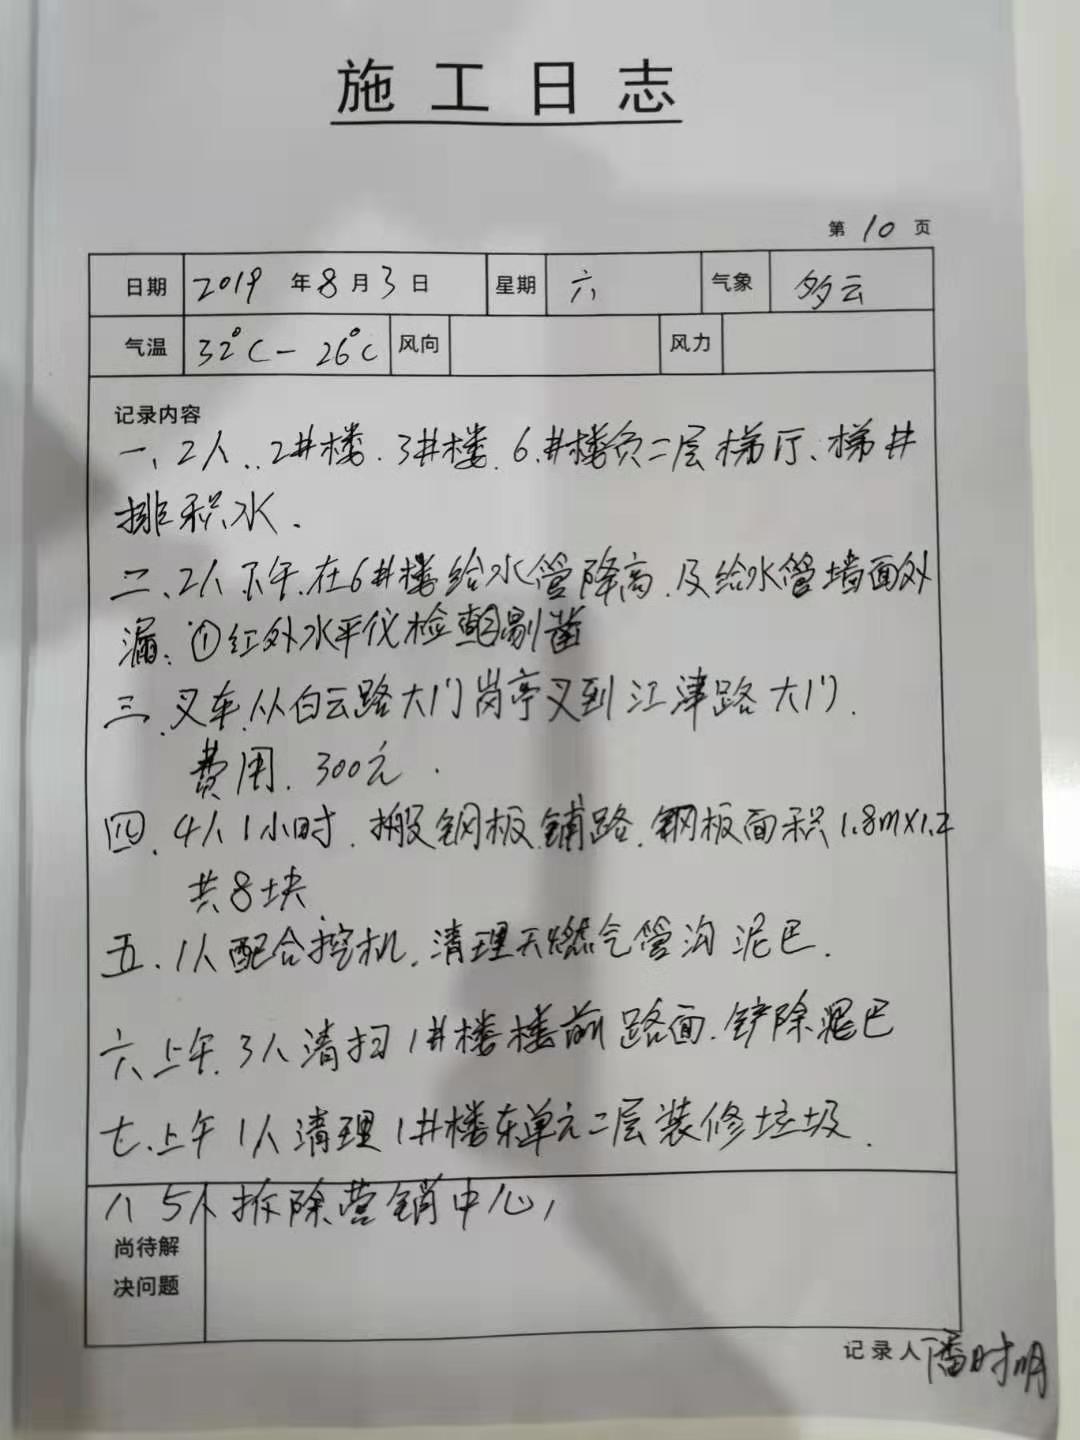 施工日志
第 10 页
日期 2019 年 8 月 3 日 星期 六 气象 多云
气温 32°C - 26°C 风向 风力
记录内容
一、2人、2#楼、3#楼、6#楼负二层梯厅、梯井
排积水.
二、2人下午.在6#楼给水管降高.及给水管墙面外
漏.①红外水平仪检 剔凿
三.叉车从白云路大门岗亭叉到江津路大门.
费用.300元.
四.4人1小时.搬钢板铺路.钢板面积1.8m×1.2
共8块
五.1人配合挖机.清理天燃气管沟泥巴.
六上午.3人清扫1#楼楼前路面.铲除泥巴
七.上午1人清理1#楼东单元二层装修垃圾.
八 5人拆除营销中心,
尚待解
决问题
记录人 潘时明